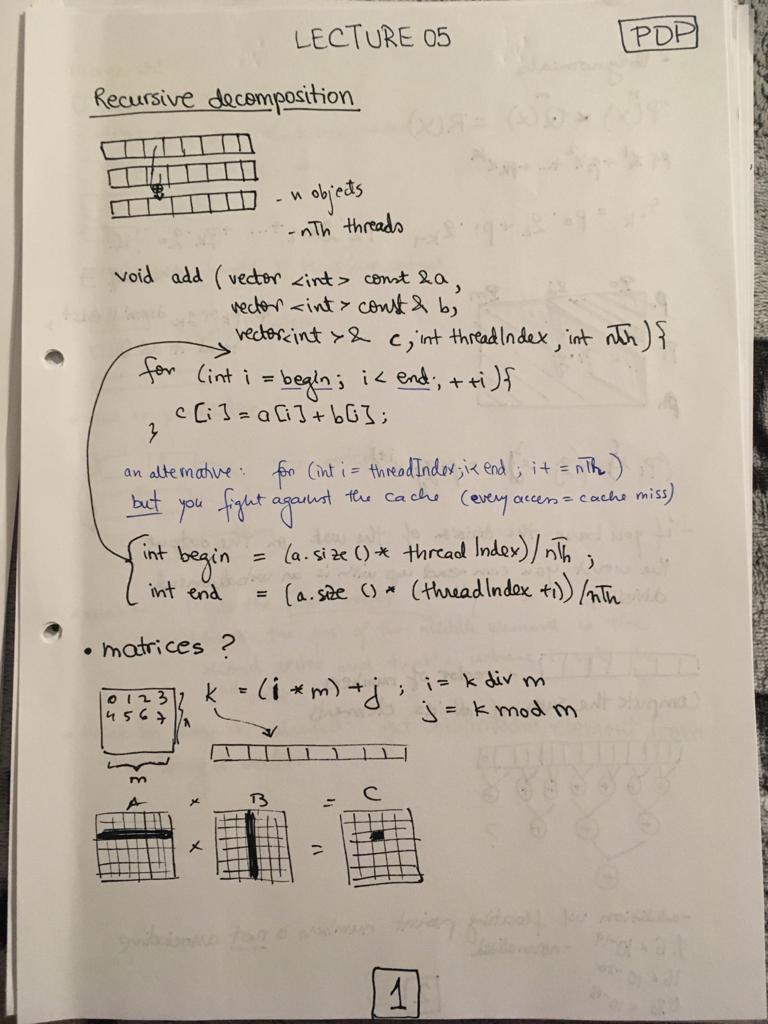 LECTURE 05
PDP
Recursive decomposition
- n objects
- nTh threads
void add (vector <int> const &a,
vector <int> const & b,
vector<int> & c, int threadIndex, int nTh) {
for (int i = begin; i < end; ++i) {
c[i] = a[i] + b[i];
}
an alternative: for (int i = threadIndex; i< end; i+ = nTh)
but you fight against the cache (every access = cache miss)
int begin = (a.size () * thread Index) / nTh ;
int end = (a.size () * (threadIndex +1)) / nTh
• matrices ?
0 1 2 3
4 5 6 7
n
m
k = (i * m) + j ; i = k div m
j = k mod m
A × B = C
× =
1